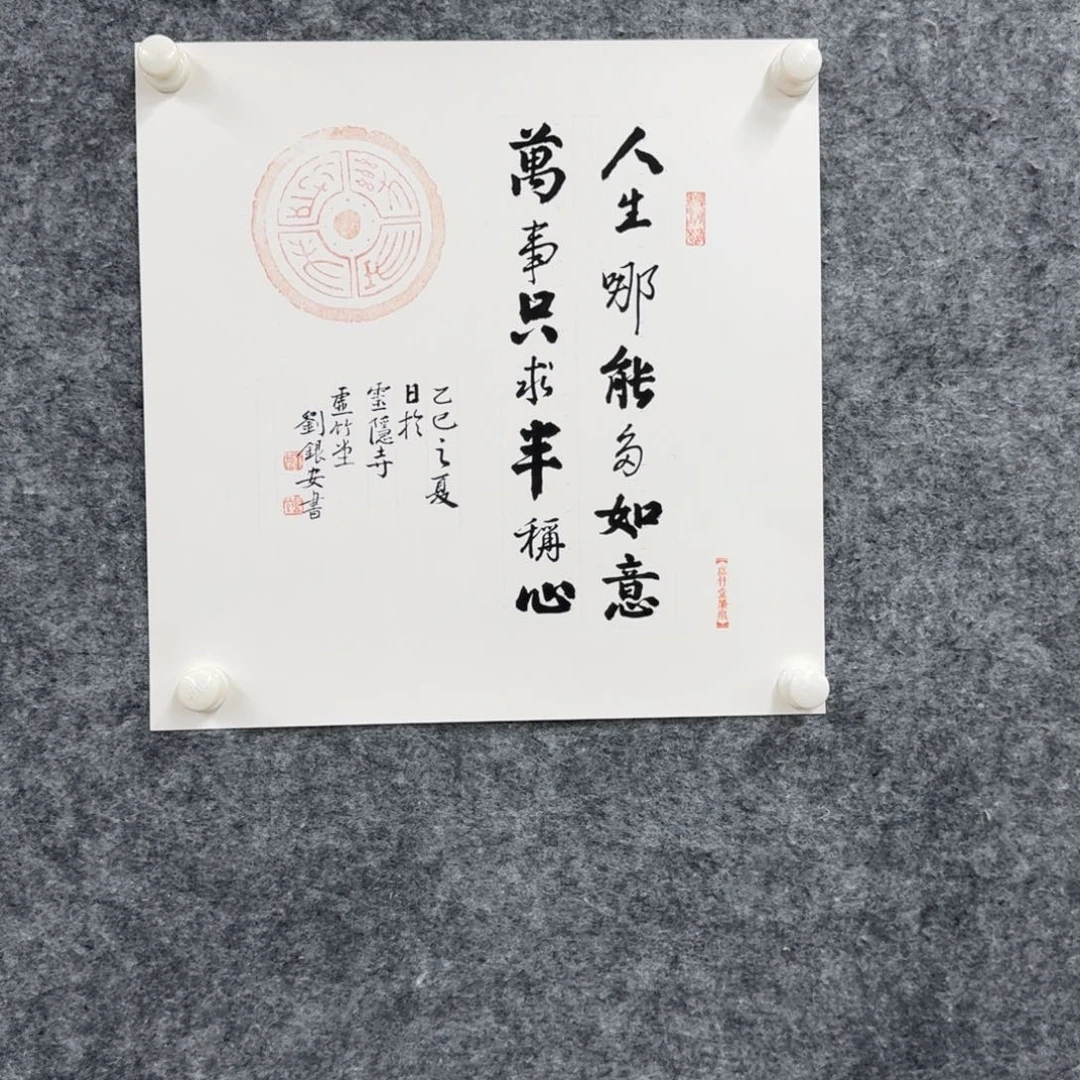 人生哪能多如意
萬事只求半稱心
乙巳之夏
日於
靈隱寺
虛竹堂
劉銀安書